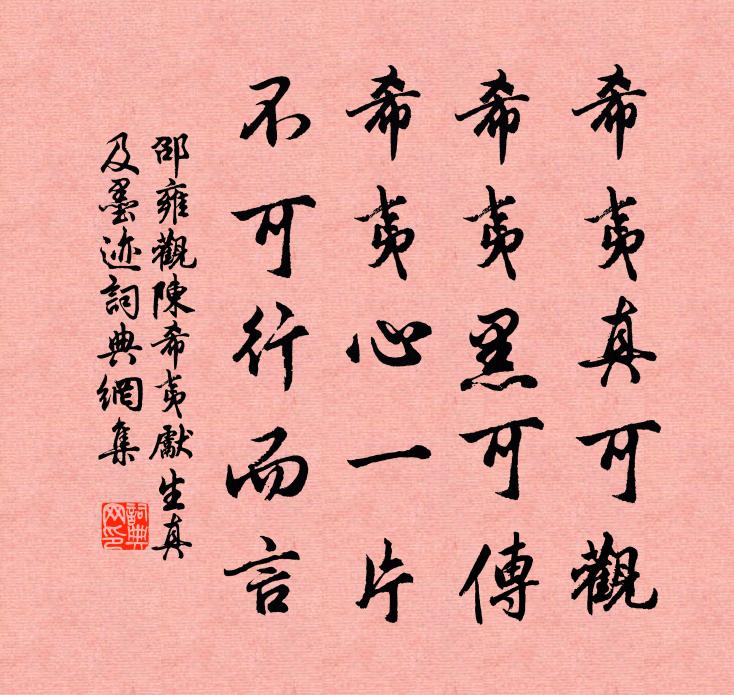 希夷真可觀
希夷墨可傳
希夷心一片
不可行而言
邵雍觀陳希夷獻生真
及墨迹詞典網集
詞典
网印